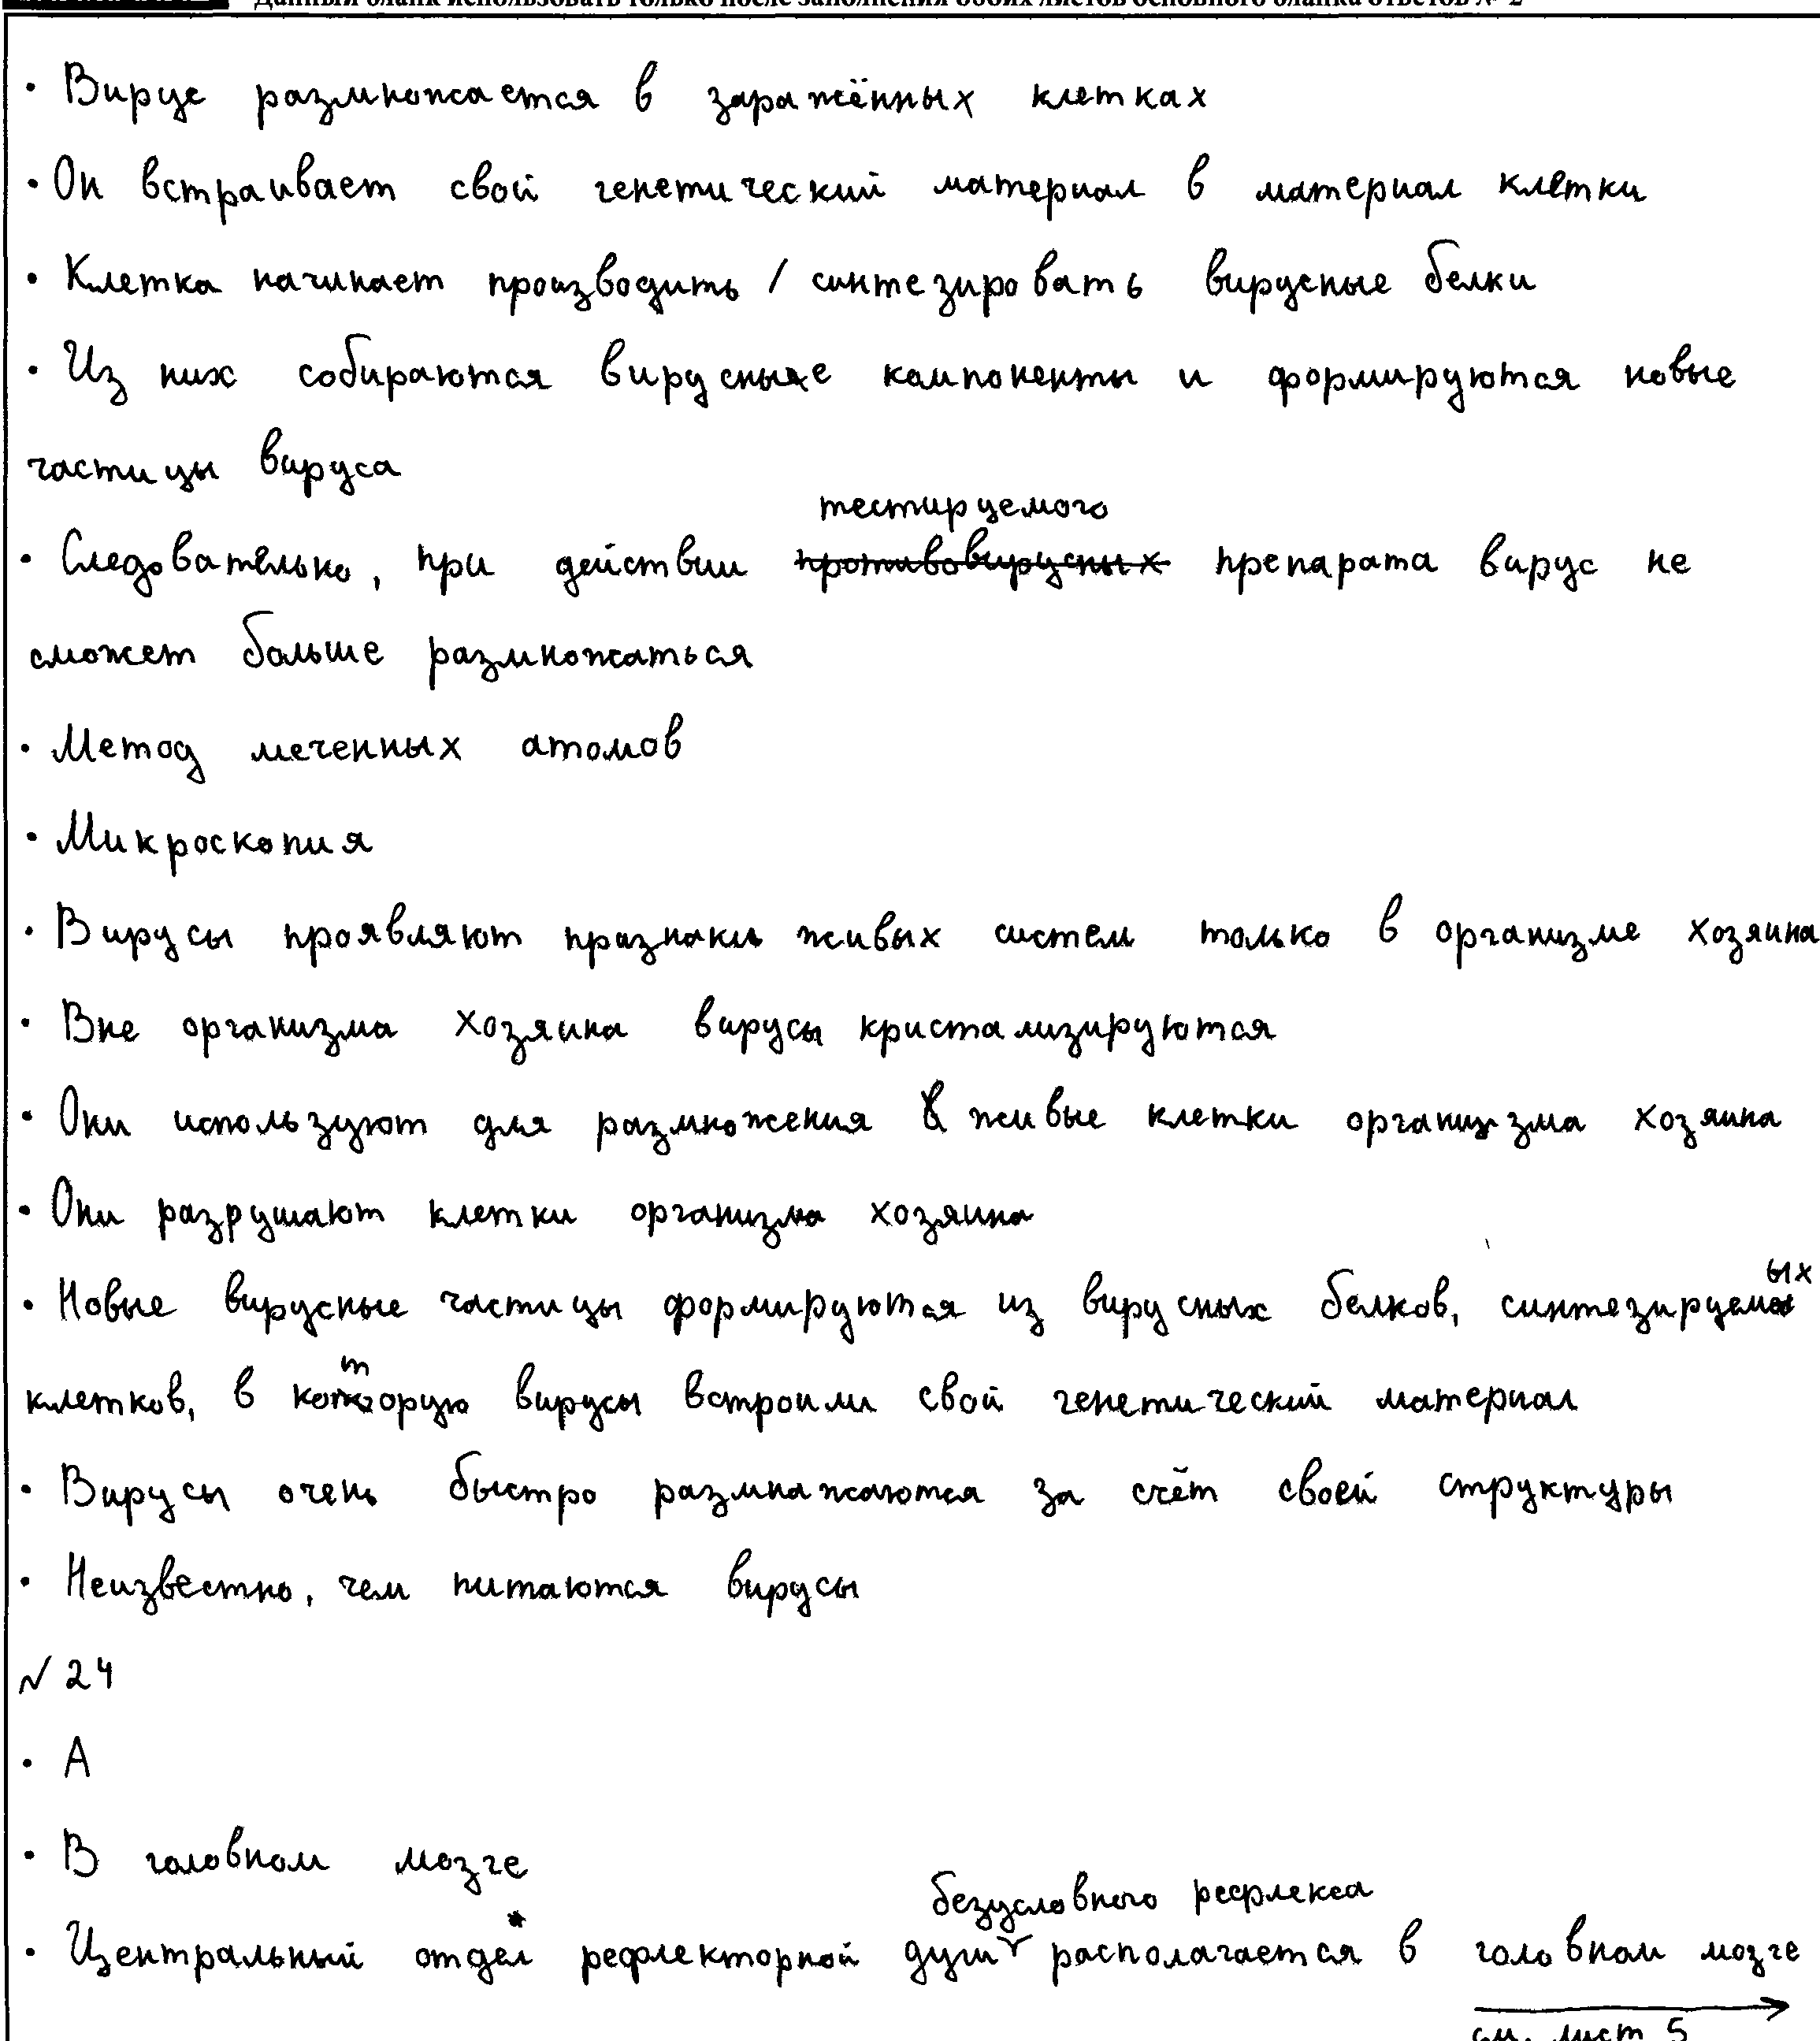 Данный бланк использовать только после заполнения обоих листов основного бланка ответов № 2
• Вирус размножается в заражённых клетках
• Он встраивает свой генетический материал в материал клетки
• Клетка начинает производить / синтезировать вирусные белки
• Из них собираются вирусные компоненты и формируются новые
частицы вируса
тестируемого
• Следовательно, при действии противовирусных препарата вирус не
сможет больше размножаться
• Метод меченных атомов
• Микроскопия
• Вирусы проявляют признаки живых систем только в организме хозяина
• Вне организма хозяина вирусы кристализируются
• Они используют для размножения живые клетки организма хозяина
• Они разрушают клетки организма хозяина
• Новые вирусные частицы формируются из вирусных белков, синтезируемых
клетков, в которую вирусы встроили свой генетический материал
• Вирусы очень быстро размнажаются за счёт своей структуры
• Неизвестно, чем питаются вирусы
№ 24
• А
• В головном мозге
безусловного рефлекса
• Центральный отдел* рефлекторной дуги располагается в головном мозге
см. лист 5